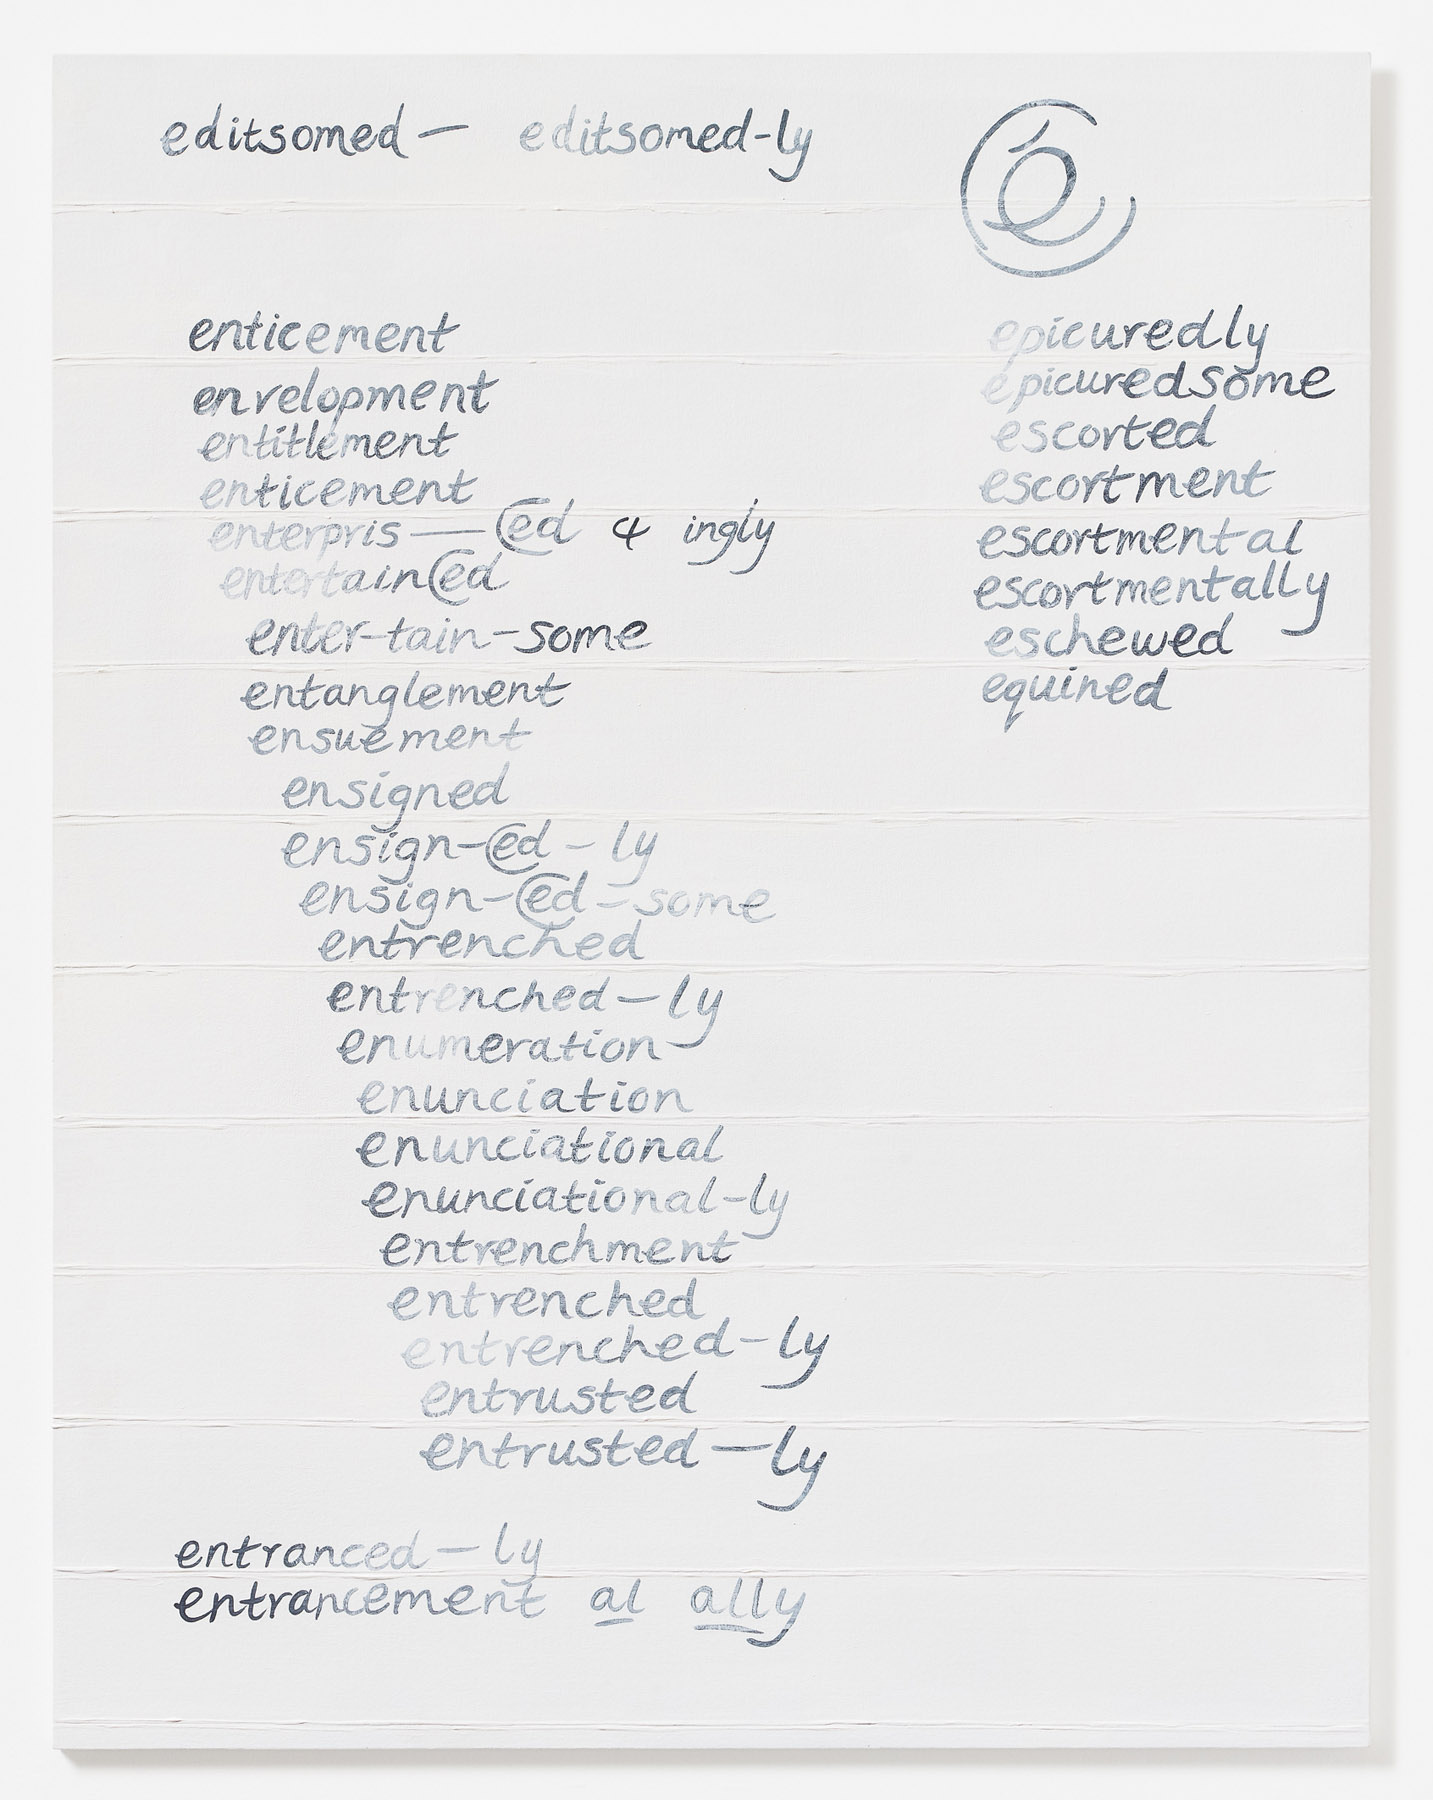 editsomed — editsomed-ly
e
enticement
envelopment
entitlement
enticement
enterpris — ed & ingly
entertained
enter-tain-some
entanglement
ensuement
ensigned
ensign-ed-ly
ensign-ed-some
entrenched
entrenched-ly
enumeration
enunciation
enunciational
enunciational-ly
entrenchment
entrenched
entrenched-ly
entrusted
entrusted-ly
entranced-ly
entrancement al ally
epicuredly
epicuredsome
escorted
escortment
escortmental
escortmentally
eschewed
equined